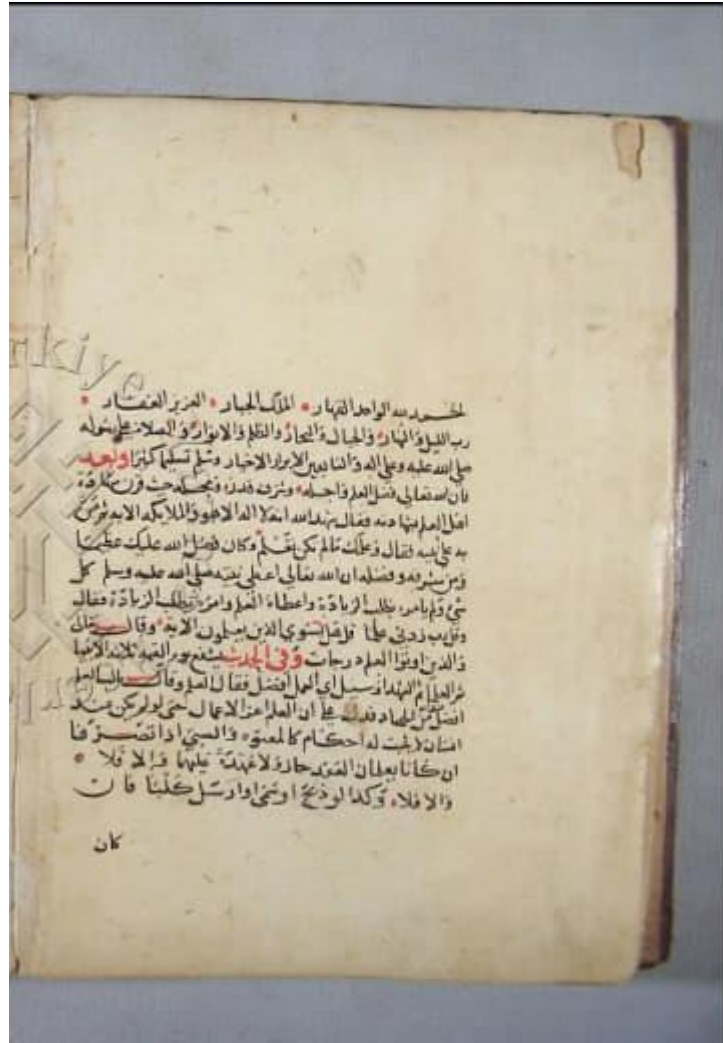 الحمد لله الواحد القهار الملك الجبار العزيز الغفار
رب الليل والنهار والجبال والبحار والظلم والانوار والصلاة على رسوله
صلى الله عليه وعلى اله والتابعين الابرار الاخيار وسلم تسليما كثيرا وبعد
فان الله تعالى فضل العلم واجله وشرف قدره حيث قرن شهادة
اهل العلم شهادته فقال شهد الله انه لا اله الا هو والملايكه الايه
به على نبيه فقال وعلمك مالم تكن تعلم وكان فضل الله عليك عظيما
ومن شرفه وفضله ان الله تعالى اعطى نبيه صلى الله عليه وسلم كل
شي ولم يامره بطلب الزيادة واعطاه العلم وامره بطلب الزيادة فقال
وقل رب زدني علما قل هل يستوي الذين يعلمون الايه وقال تعالى
والذين اوتوا العلم درجات وفي الحديث يشفع يوم القيمه ثلاثه الانبيا
ثم العلما ثم الشهدا وسيل اي العمل افضل فقال العلم وقال
افضل من الجهاد فدل على ان العلم اعز الاعمال حتى لو لم يكن عند
انسان لا يجب له احكام كالمعتوه والصبي اذا تصرفا
ان كانا يعلمان العقد جاز ولا عهدة عليهما والا فلا
والا فلا وكذا لو ذبح او سمى او ارسل كلبا فان
كان
rkiye